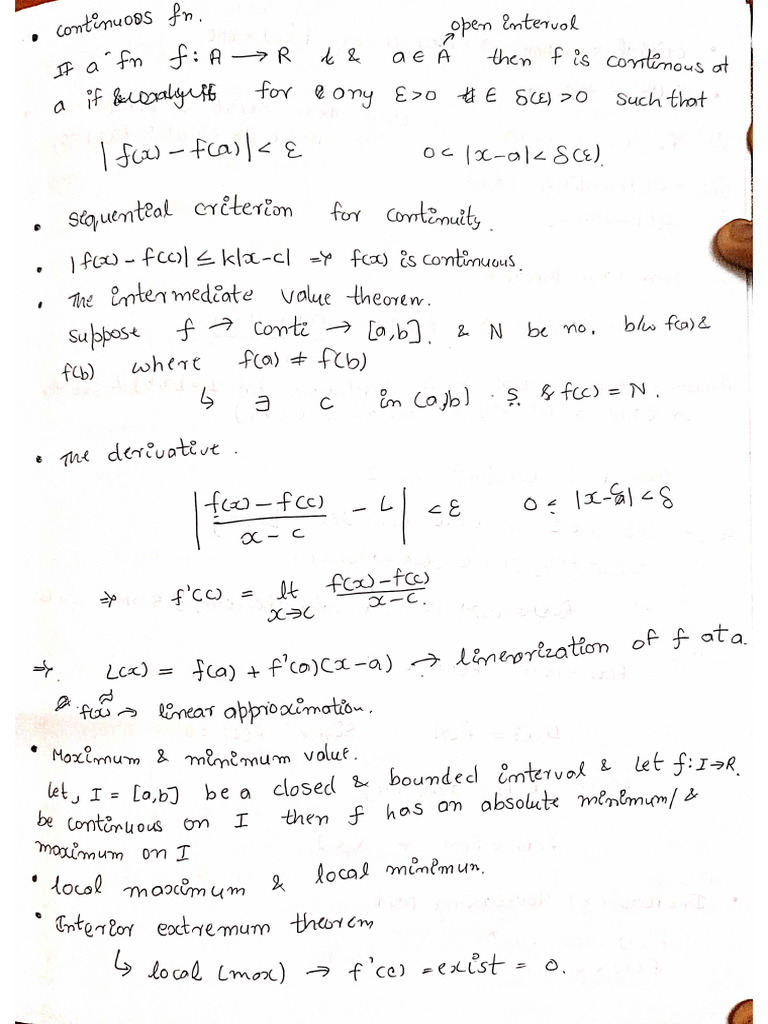 • continuous fn.
open interval
If a fn f : A → R & a ∈ A then f is continous at
a if for any ε>0 ∃ δ(ε)>0 such that
|f(x) - f(a)| < ε 0< |x-a| < δ(ε).
• Sequential criterion for continuity.
• |f(x) - f(c)| ≤ k|x-c| ⇒ f(x) is continuous.
• The intermediate value theorem.
suppose f → conti → [a,b]. & N be no. b/w f(a) &
f(b) where f(a) ≠ f(b)
↳ ∃ c in (a,b) f(c) = N.
• The derivative.
| (f(x) - f(c))/(x - c) - L | < ε 0 < |x-c| < δ
⇒ f'(c) = lt x→c (f(x) - f(c))/(x-c).
⇒ L(x) = f(a) + f'(a)(x-a) → linearization of f at a.
f(x) ≈ → linear approximation.
• Maximum & minimum value.
let, I = [a,b] be a closed & bounded interval & let f: I → R.
be continuous on I then f has an absolute minimum/ &
maximum on I
• local maximum & local minimum.
• Interior extremum theorem
↳ local (max) → f'(c) = exist = 0.